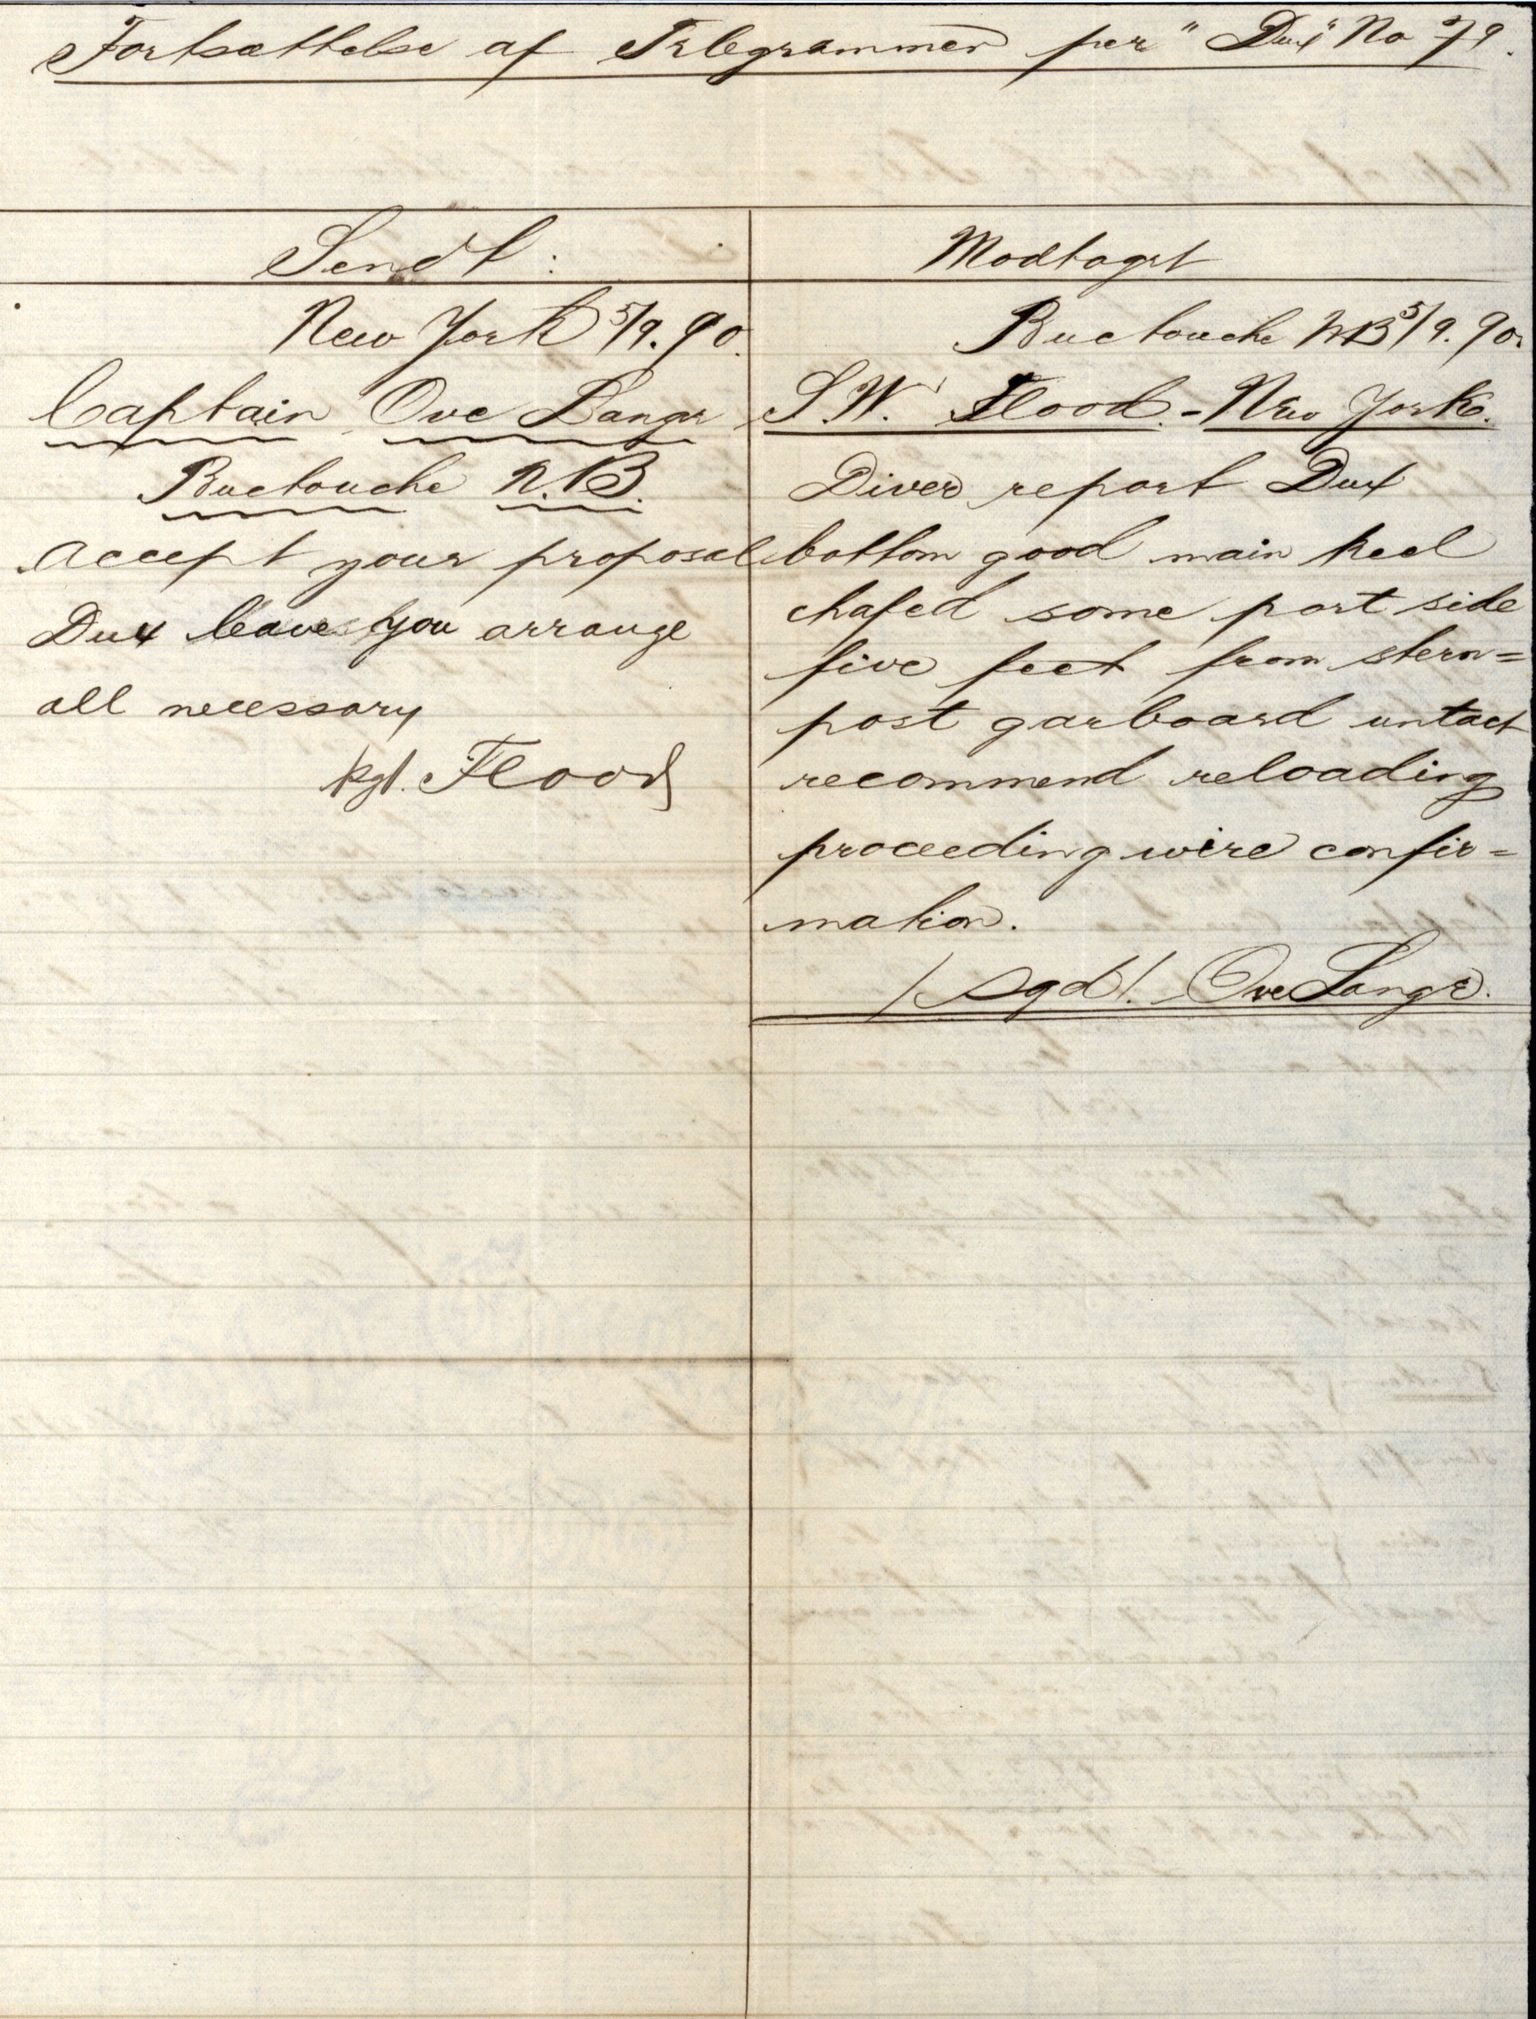 Fortsættelse af Telegrammer per "Dux" No 79.
Sendt:
New York 5/9. 90.
Captain Ove Lange
Buctouche N.B.
Accept your proposal
Dux leave you arrange
all necessary
sgd. Flood
Modtaget
Buctouche NB 5/9. 90.
S.W. Flood. - New York.
Diver report Dux
bottom good main keel
chafed some port side
five feet from stern=
post garboard untact
recommend reloading
proceeding wire confir=
mation.
/sgd/. Ove Lange.